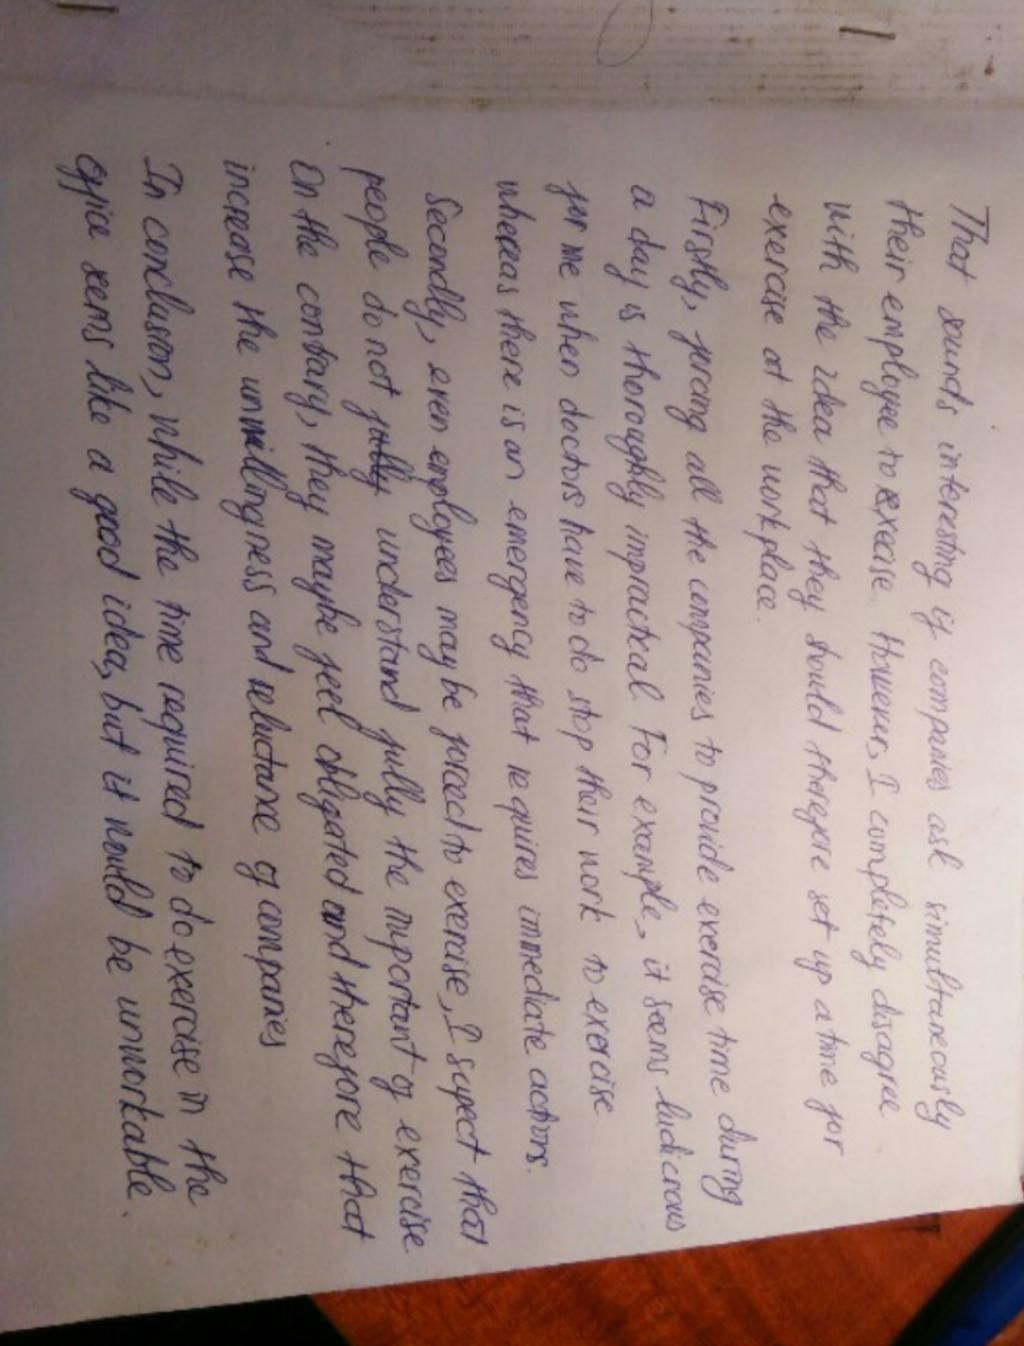 That sounds interesting if companies ask simultaneously
their employee to execise. However, I completely disagree
with the idea that they should therefore set up a time for
exercise at the workplace.
Firstly, forcing all the companies to provide exercise time during
a day is thoroughly impractical. For example, it seems ludicrous
for me when doctors have to do stop their work to exercise
whereas there is an emergency that requires immediate actions.
Secondly, even employees may be forced to exercise, I supect that
people do not fully understand fully the important of exercise.
On the contrary, they maybe feel obligated and therefore that
increase the unwillingness and reluctance of companies
In conclusion, while the time required to do exercise in the
office sems like a good idea, but it would be unworkable.